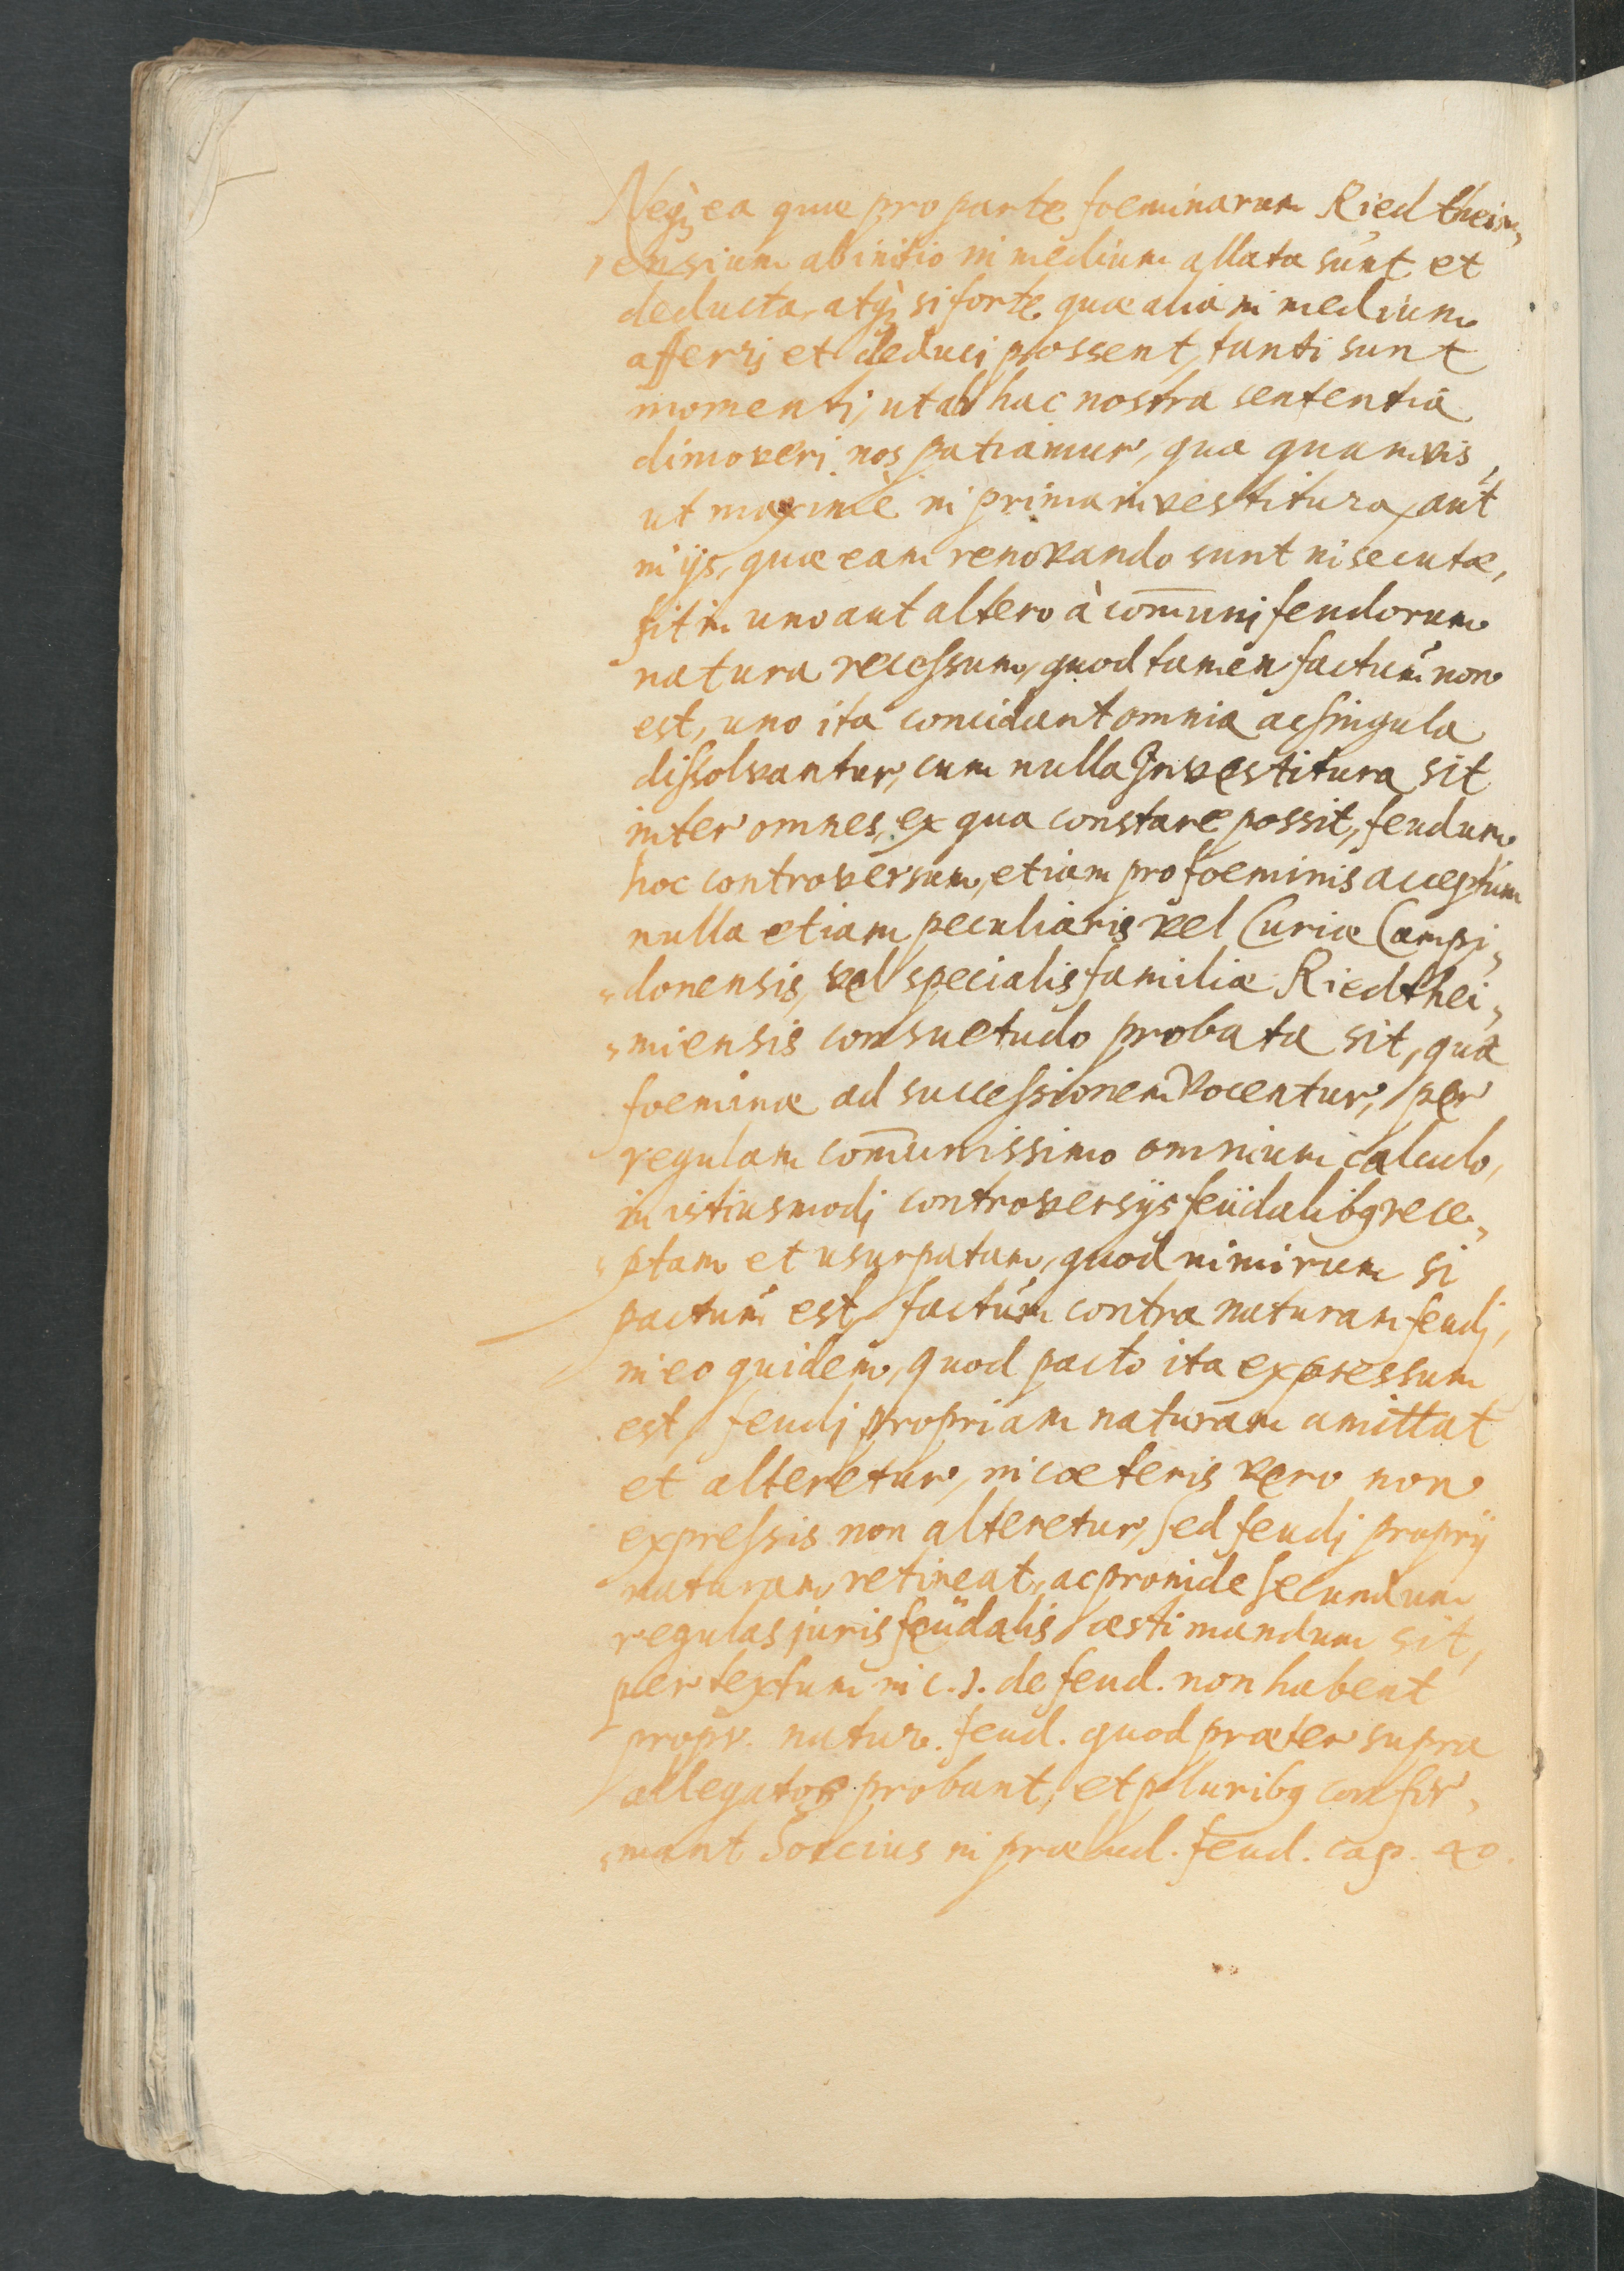 Neq; ea quæ pro parte foeminarum Riedtheim„
„ensium ab initio in medium allata sunt et
deducta, atq; si forte quæ alia in medium
afferrj et deduci possent, tanti sunt
momenti, ut ab hac nostra sententia
dimoverj nos patiamur, qua quamvis,
ut maximè in prima investitura, aut
in ijs, quæ eam renovando sunt insecutæ,
sit in uno aut altero à com̄unj feudorum
natura recessum, quod tamen factum non
est, uno ita concidant omnia ac singula
dissolvantur, cum nulla Investitura sit
inter omnes, ex qua constare possit, feudum
hoc controversum, etiam pro foeminis acceptum
nulla etiam peculiaris vel Curiæ Campi„
„donensis, vel specialis familiæ Riedthei„
„miensis consuetudo probata sit, qua
foeminæ ad successionem vocentur, per
regulam com̄unissimo omnium calculo,
in istiusmodj controversijs feudalibq rece„
„ptam et usurpatam, quod nimirum si
pactum est factum contra naturam feudj,
in eo quidem, quod pacto ita expressum
est, feudj propriam naturam amittat
et alteretur, in cæteris vero non
expressis non alteretur, sed feudj proprij
naturam retineat, ac proinde secundum
regulas juris feudalis æstimandum sit,
per textum in c. 1. de feud. non habent
propr. natur. feud. quod præter supra
allegatos probant, et pluribq confir„
„mant Sorcius in prælud. feud. cap. 40.